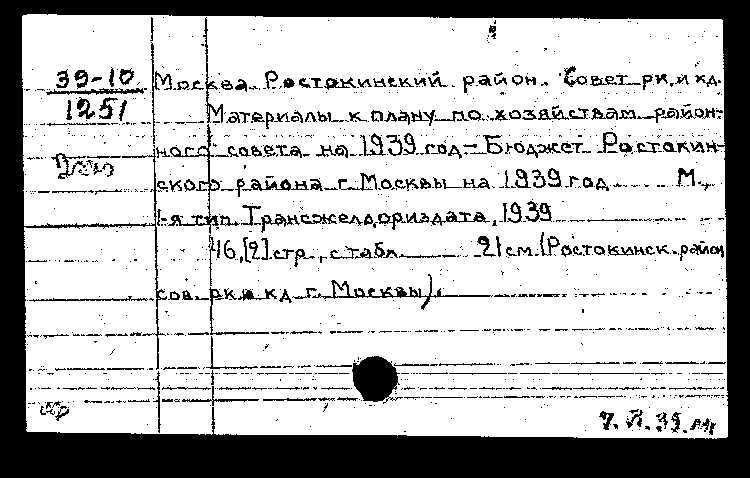 39-10 Москва. Ростокинский район. Совет рк. и кд.
1251 Материалы к плану по хозяйствам район-
ного совета на 1939 год.- Бюджет Ростокин-
ского района г. Москвы на 1939 год. М.,
1-я тип. Трансжелдориздата, 1939
46,[2] стр., с табл. 21 см. (Ростокинск. район
сов. рк. и кд г. Москвы).